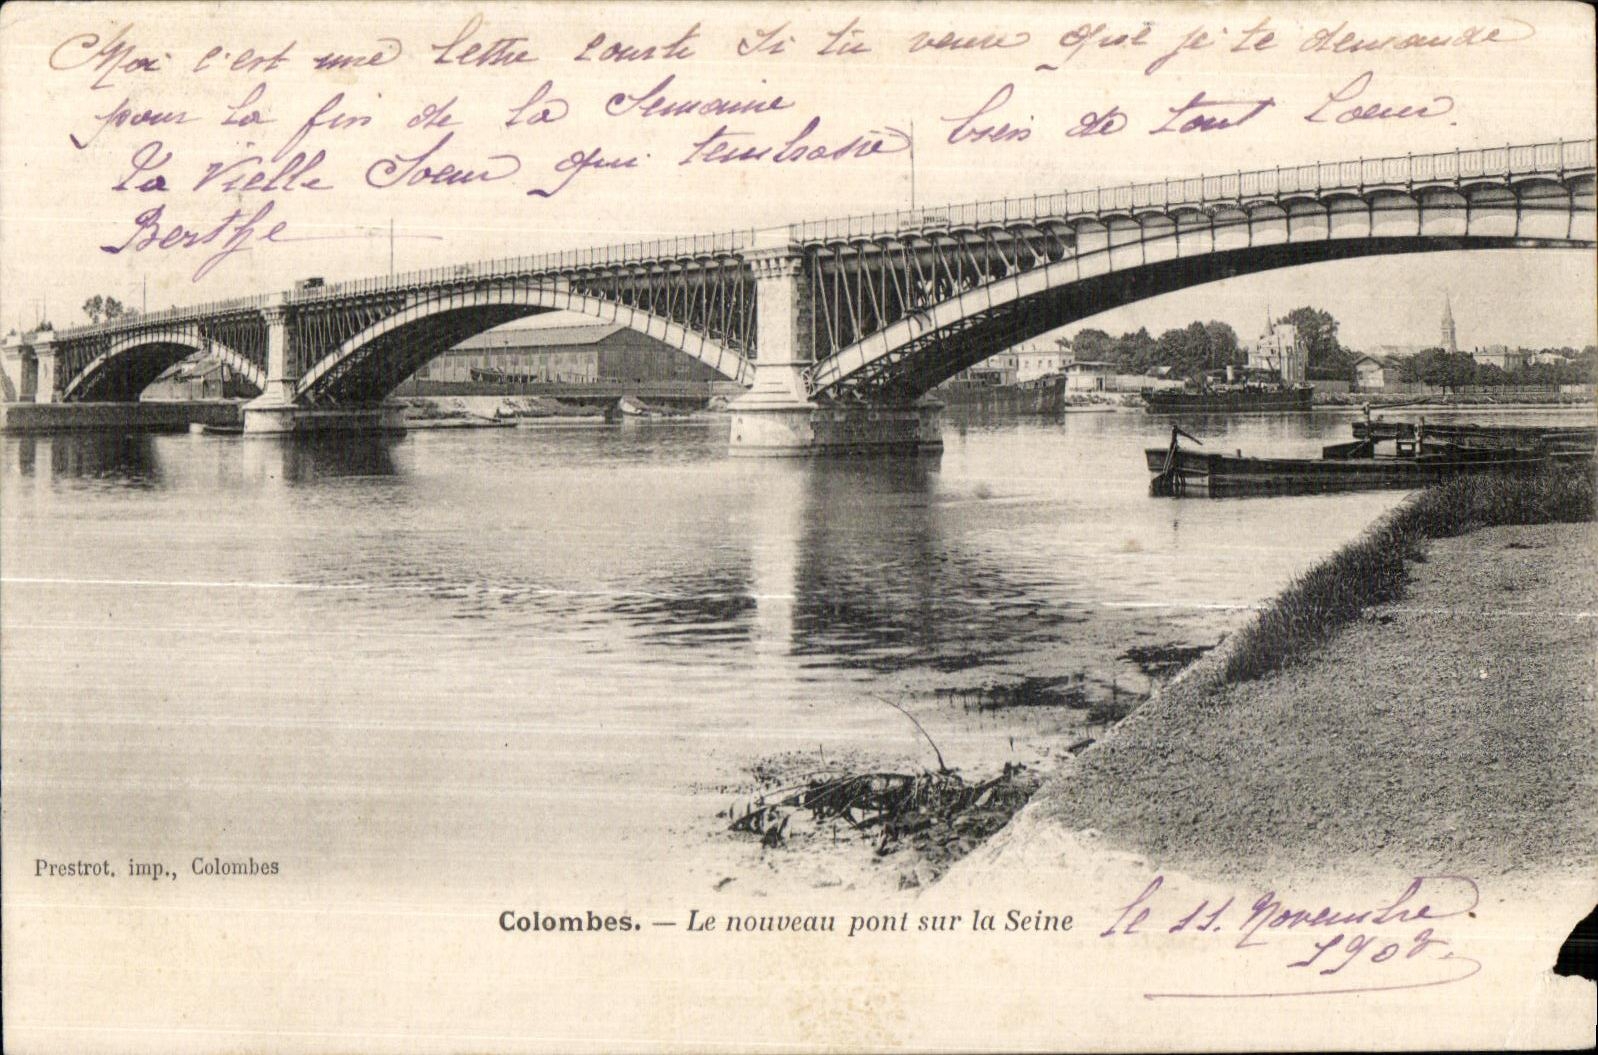 Moi c'est une lettre courte si tu veux que je te demande
pour la fin de la Semaine
Ta Vielle Soeur qui tembrasse bien de tout Coeur.
Berthe
Prestrot. imp., Colombes
Colombes. — Le nouveau pont sur la Seine
le 11. Novembre.